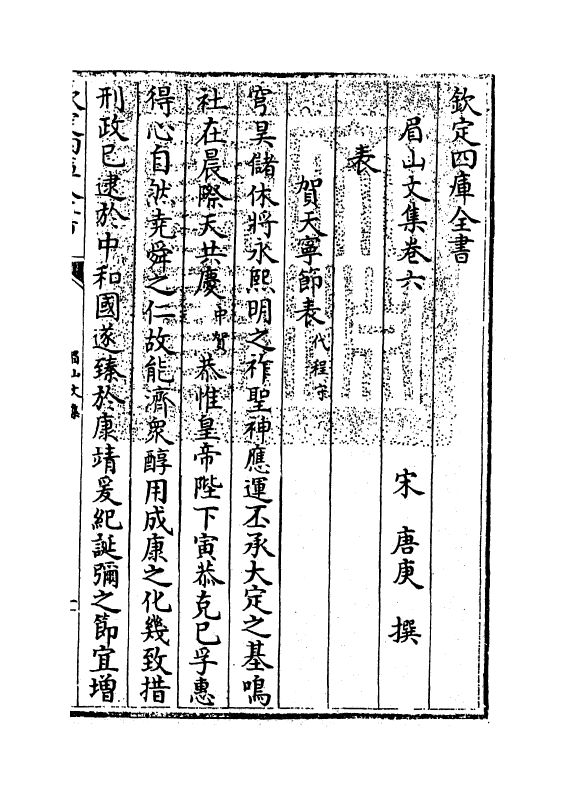 欽定四庫全書
眉山文集卷六
宋 唐庚 撰
表
賀天寧節表代程守
穹昊儲休將永熙明之祚聖神應運丕承大定之基鳴
社在晨際天共慶中賀恭惟皇帝陛下寅恭克已孚惠
得心自然堯舜之仁故能濟衆醇用成康之化幾致措
刑政已逮於中和國遂臻於康靖爰紀誕彌之節宜增
眉山文集